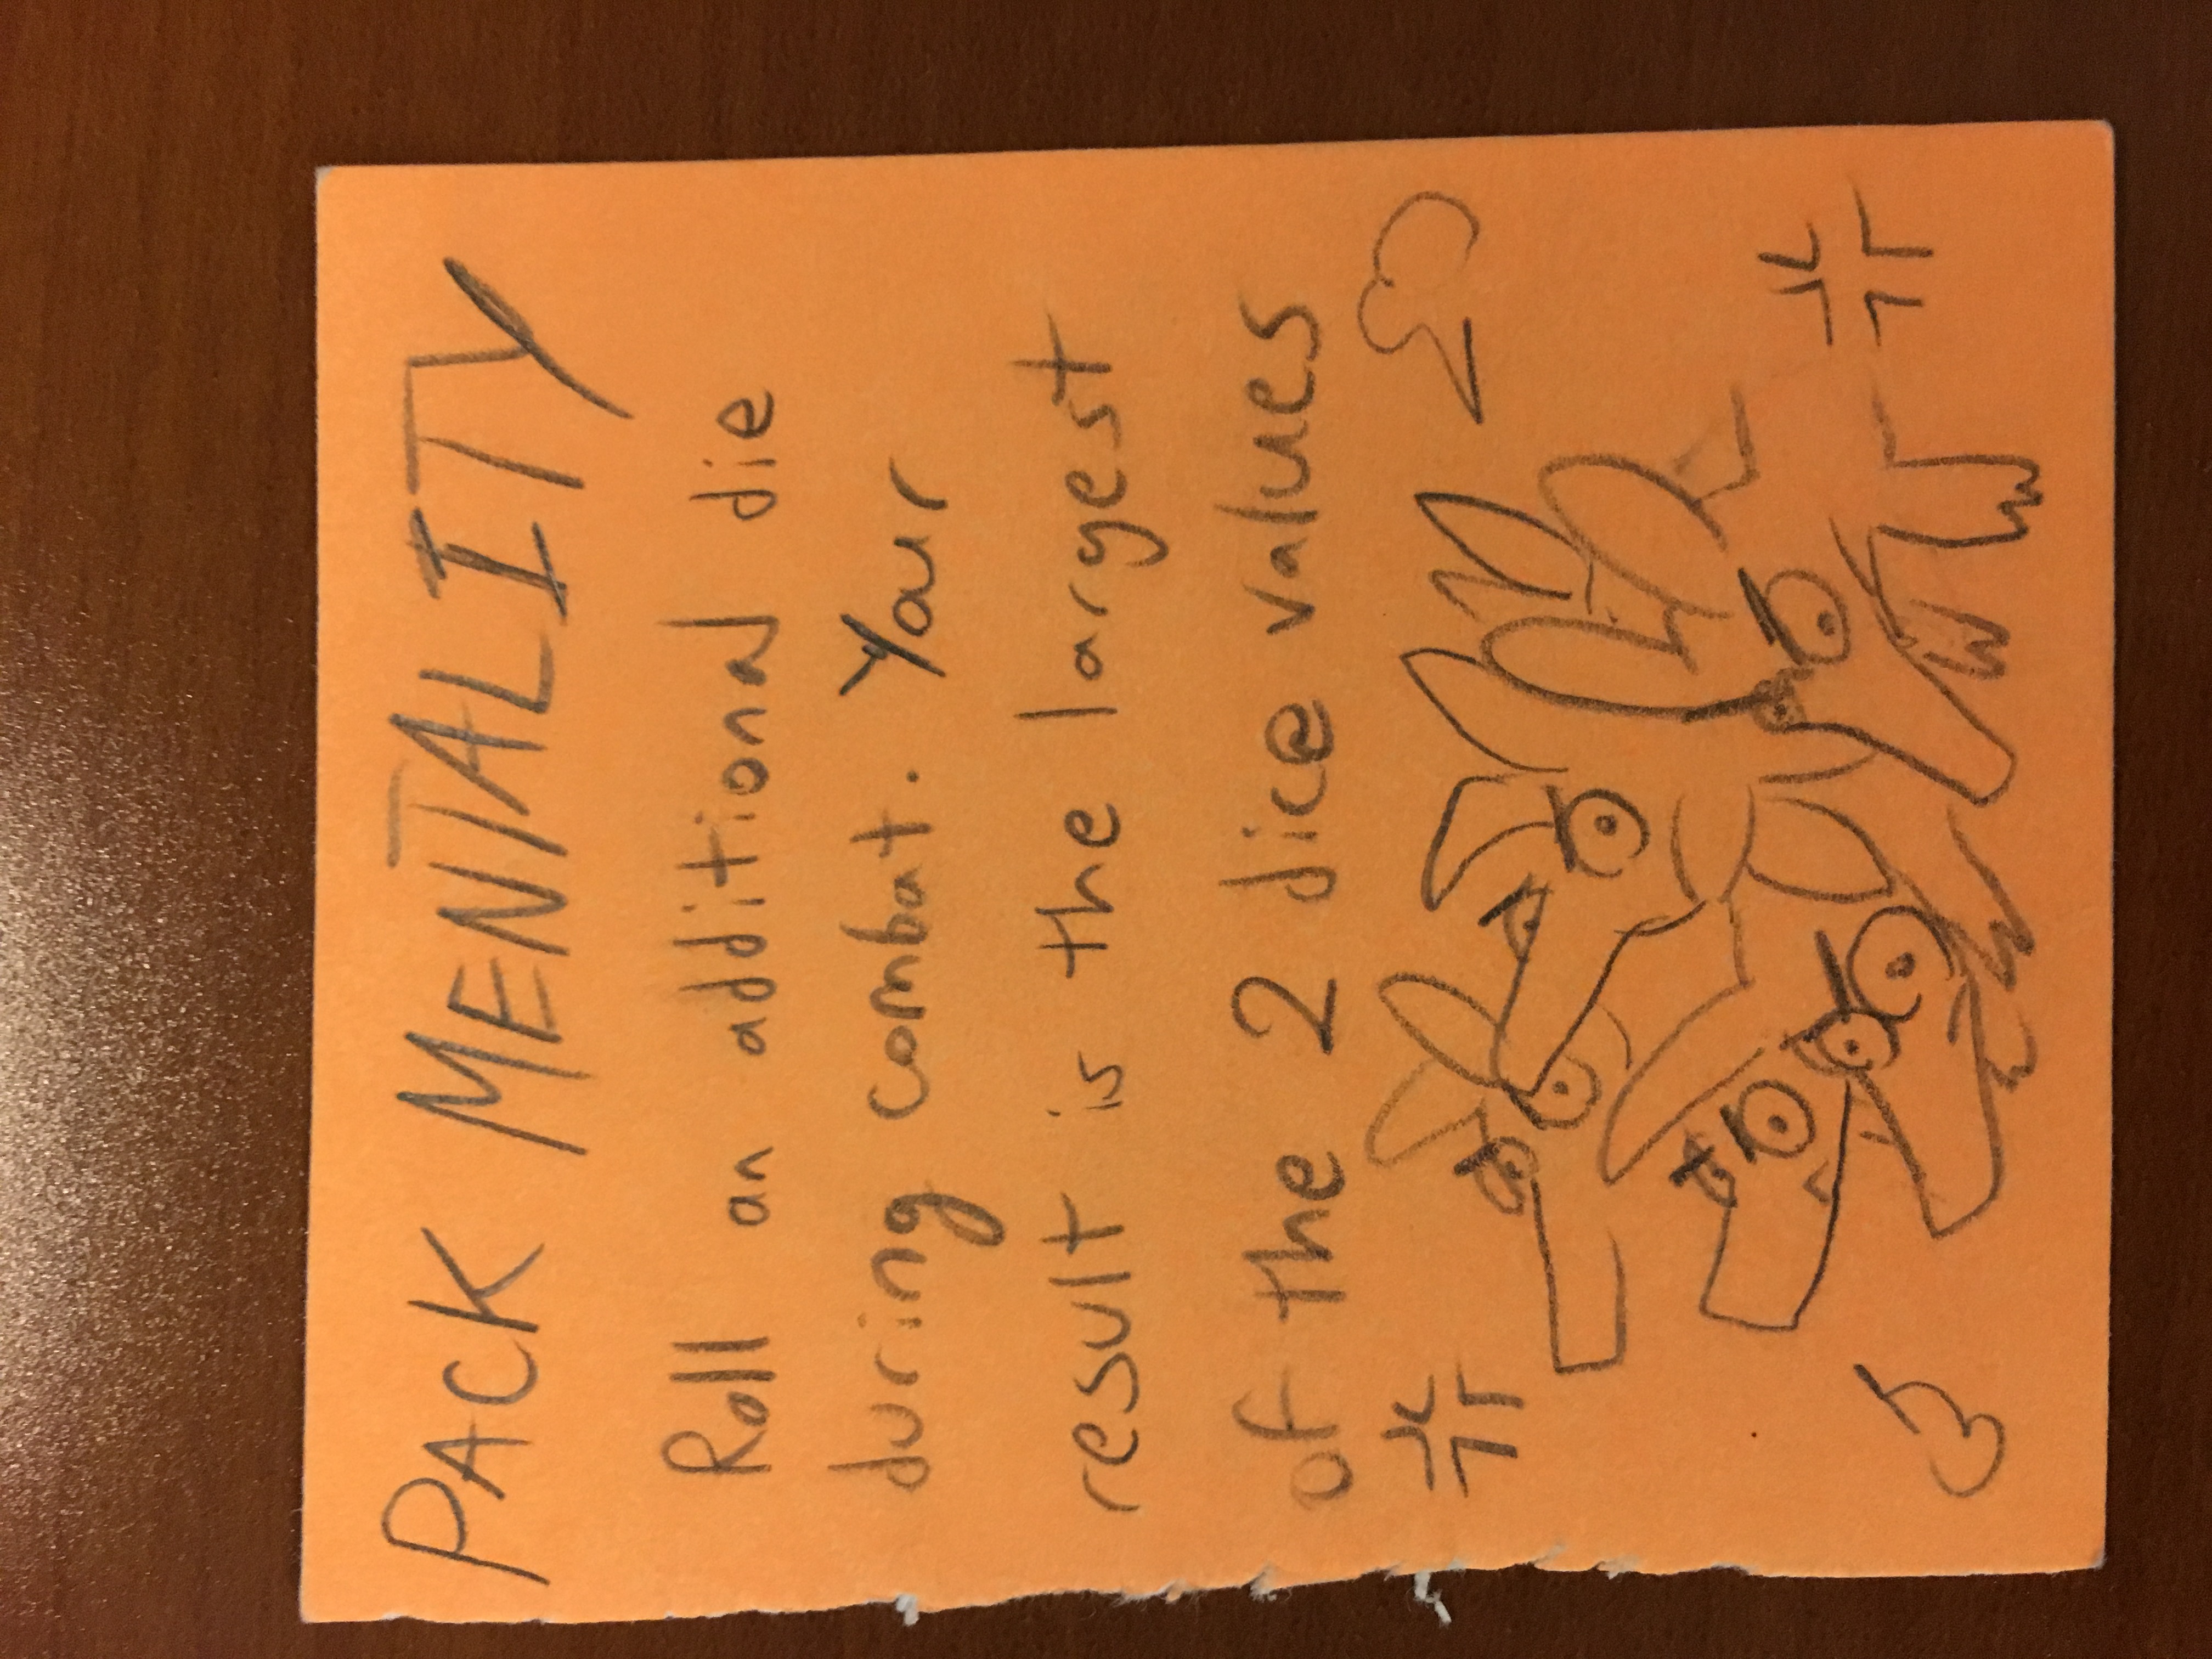 PACK MENTALITY
Roll an additional die
during combat. Your
result is the largest
of the 2 dice values